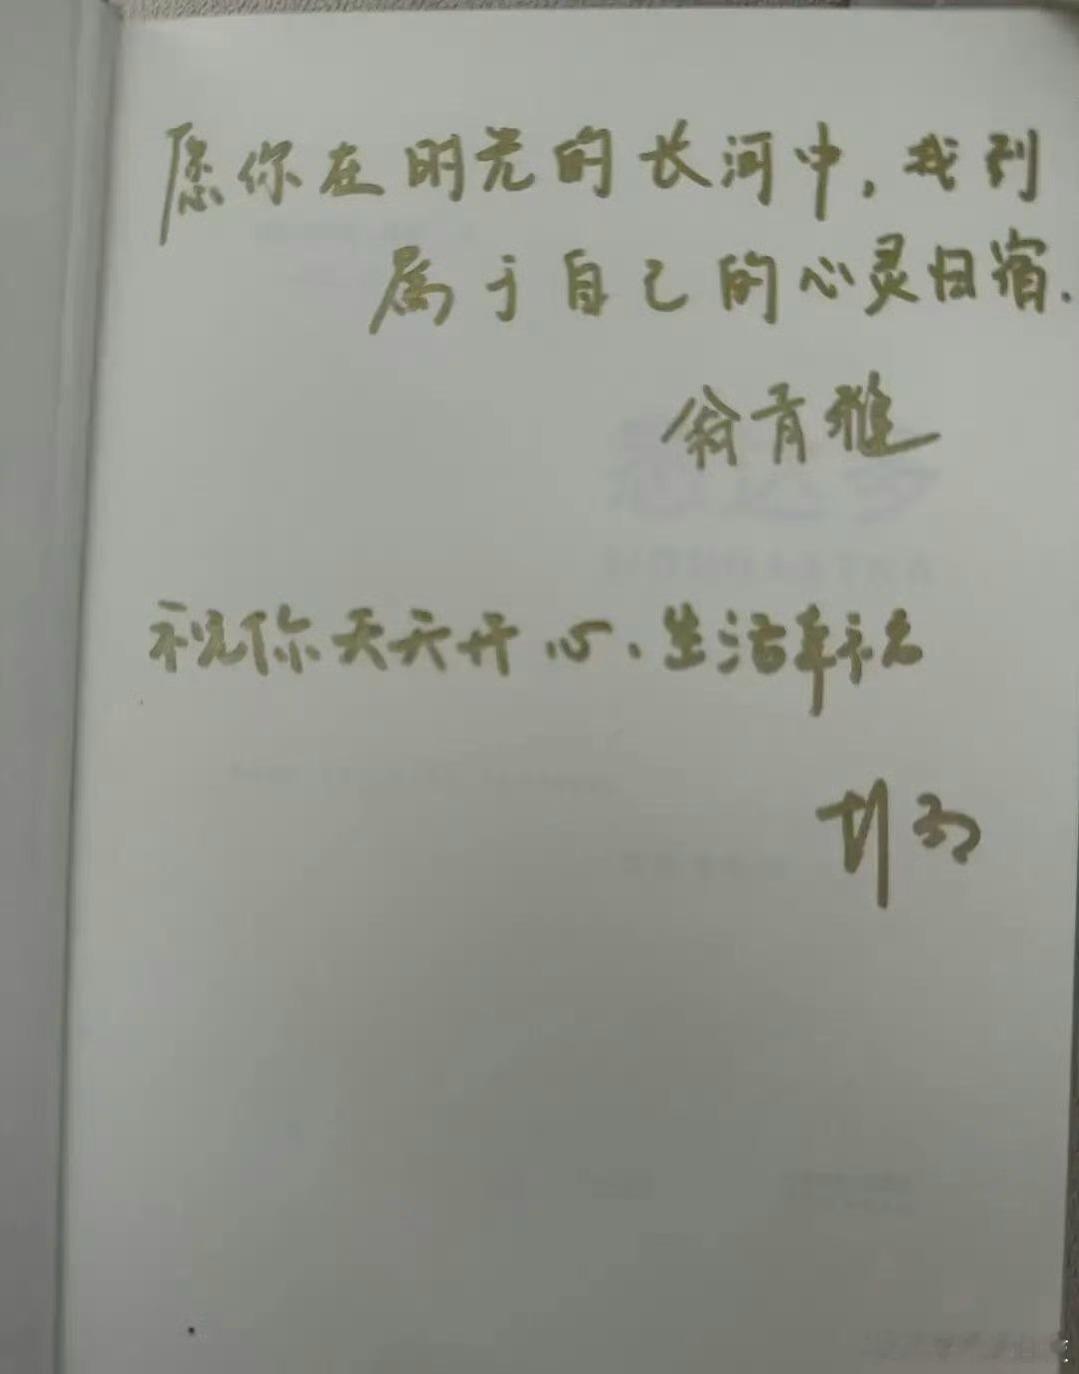 愿你在明光的长河中，找到
属于自己的心灵归宿.
翁青雅
祝你天天开心、生活幸福